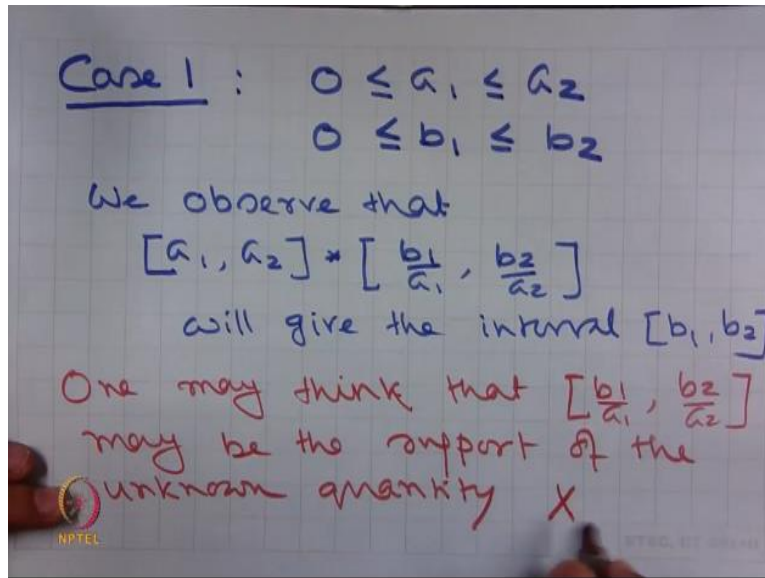 Case 1 : 0 ≤ a₁ ≤ a₂
0 ≤ b₁ ≤ b₂
We observe that
[a₁, a₂] * [b₁/a₁, b₂/a₂]
will give the interval [b₁, b₂]
One may think that [b₁/a₁, b₂/a₂]
may be the support of the
unknown quantity X
NPTEL